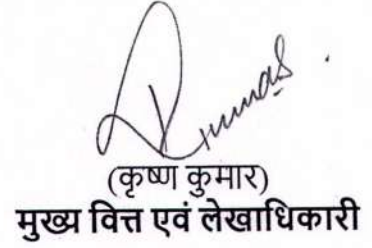 (कृष्ण कुमार)
मुख्य वित्त एवं लेखाधिकारी